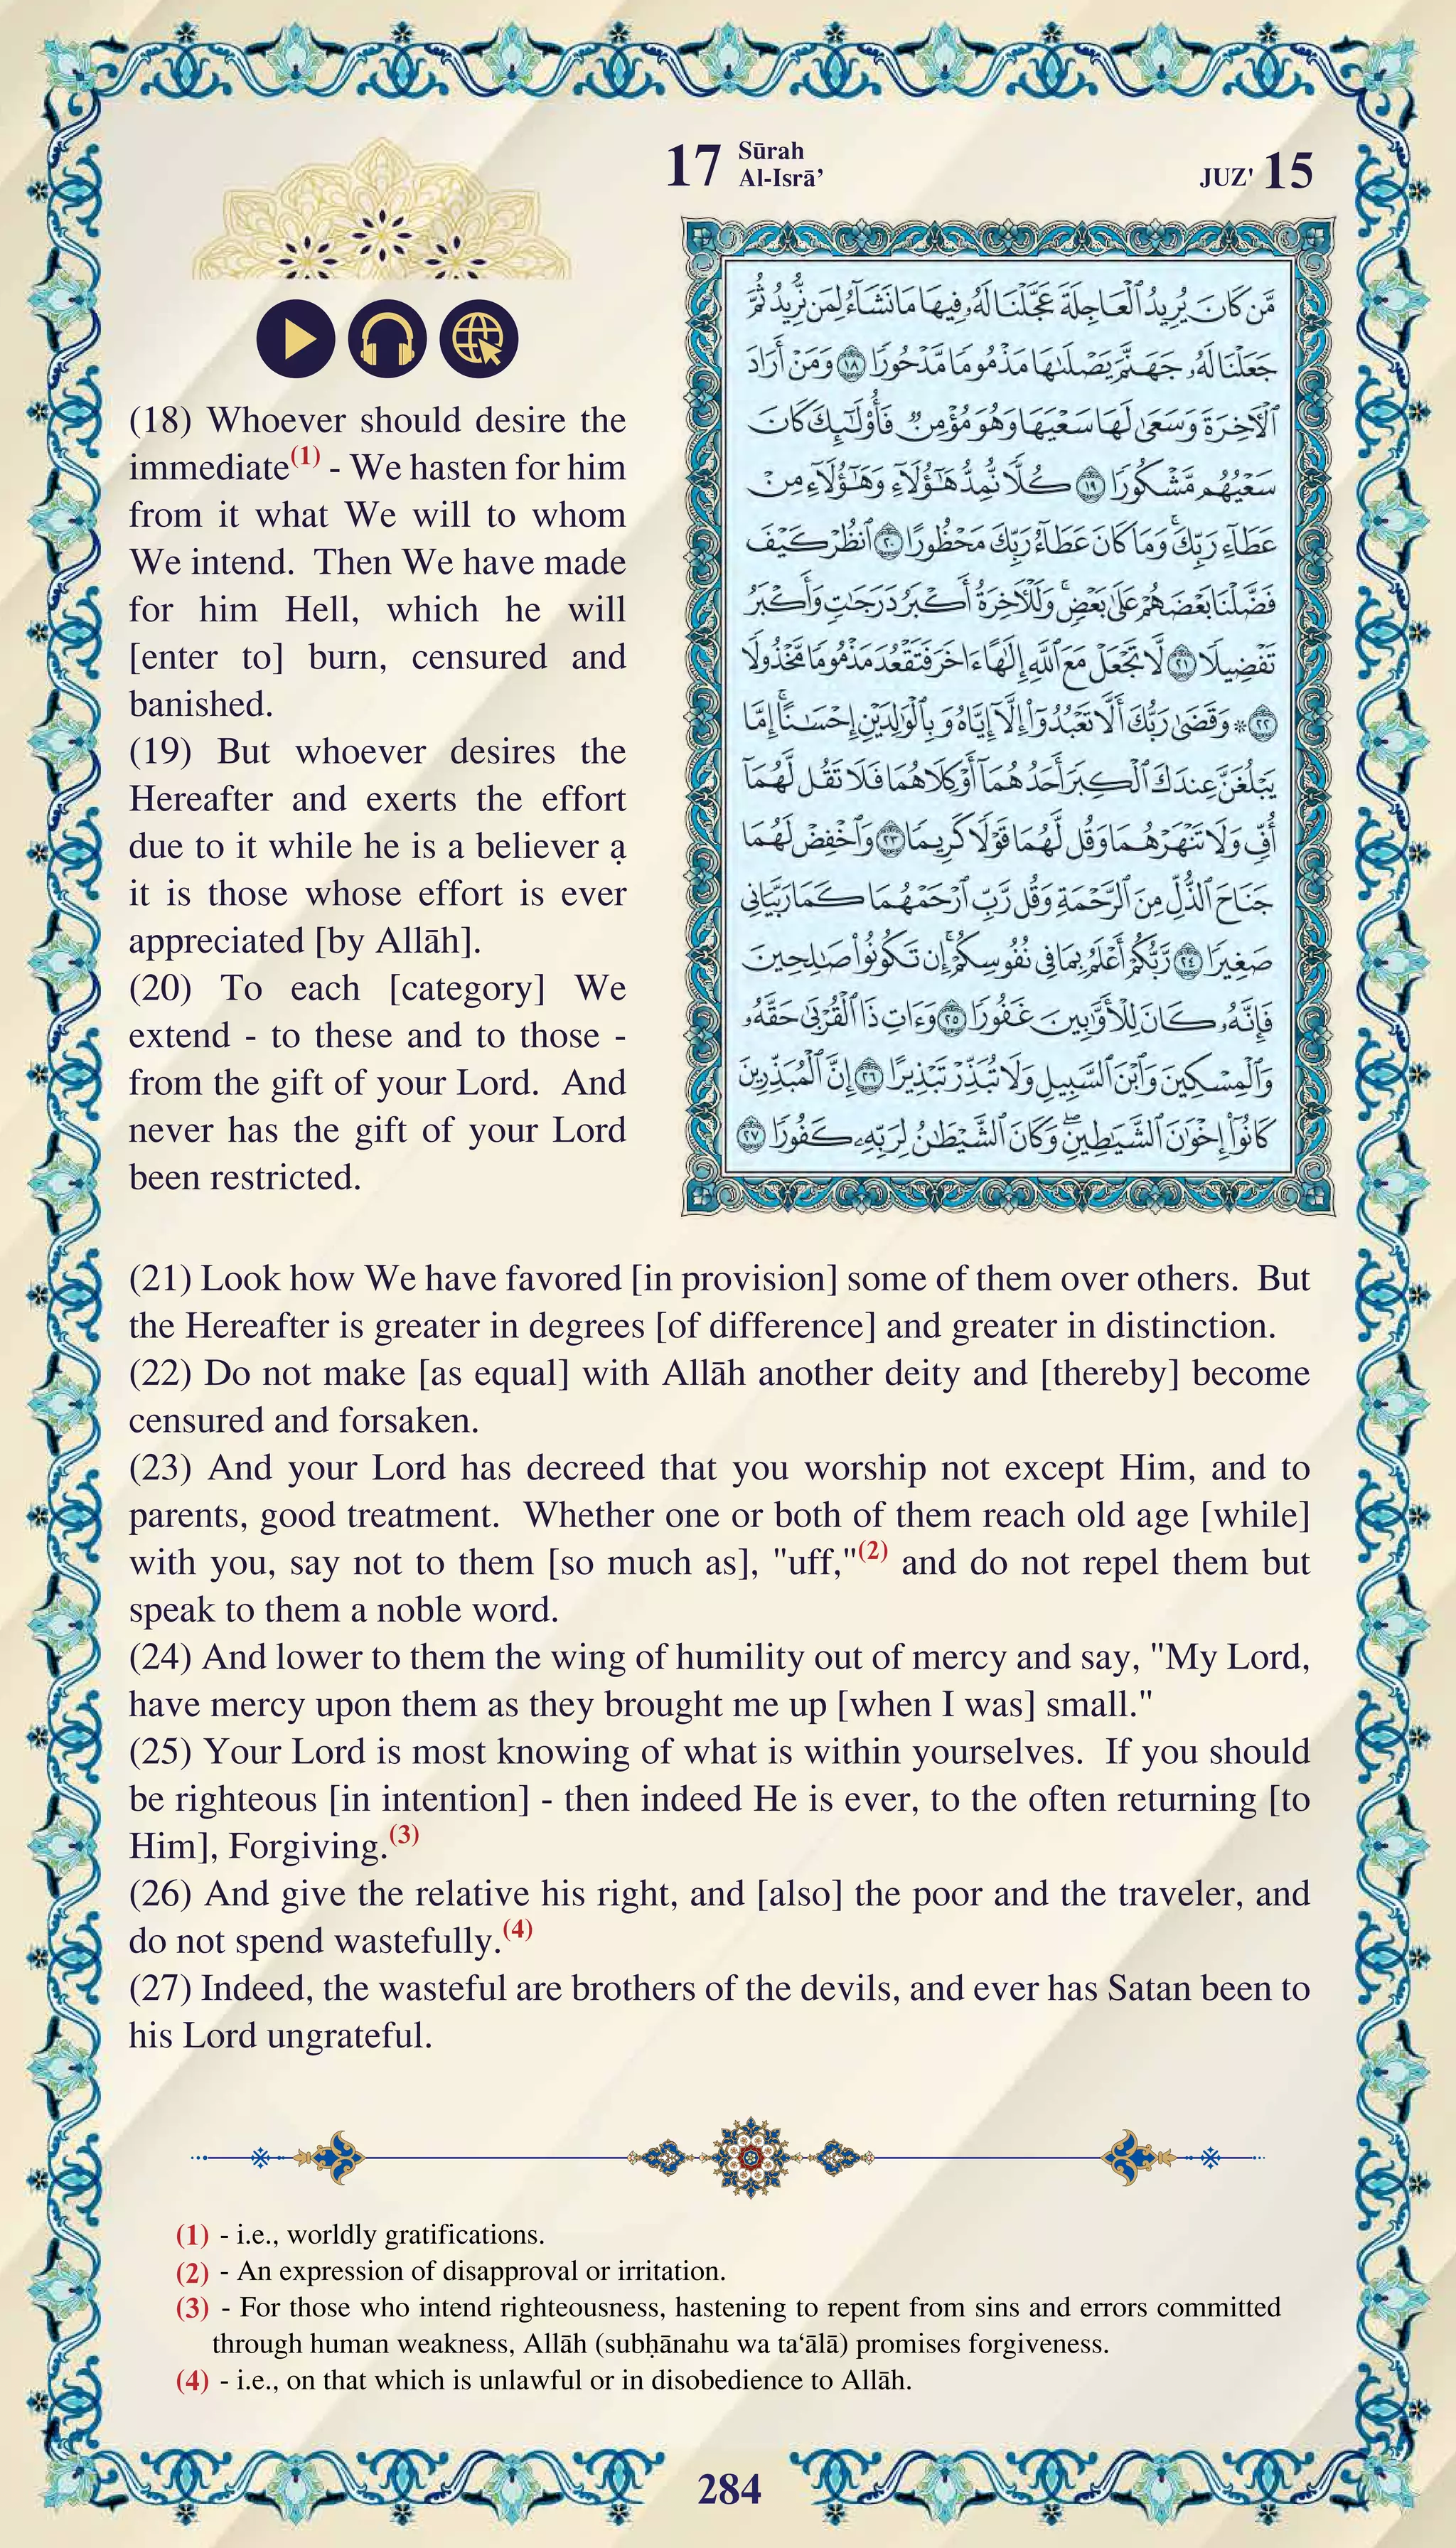 17 Sūrah
Al-Isrā’
JUZ' 15
مَّن كَانَ يُرِيدُ ٱلْعَاجِلَةَ عَجَّلْنَا لَهُۥ فِيهَا مَا نَشَآءُ لِمَن نُّرِيدُ ثُمَّ
جَعَلْنَا لَهُۥ جَهَنَّمَ يَصْلَىٰهَا مَذْمُومًا مَّدْحُورًا ١٨ وَمَنْ أَرَادَ
ٱلْـَٔاخِرَةَ وَسَعَىٰ لَهَا سَعْيَهَا وَهُوَ مُؤْمِنٌ فَأُو۟لَـٰٓئِكَ كَانَ
سَعْيُهُم مَّشْكُورًا ١٩ كُلًّا نُّمِدُّ هَـٰٓؤُلَآءِ وَهَـٰٓؤُلَآءِ مِنْ
عَطَآءِ رَبِّكَ ۚ وَمَا كَانَ عَطَآءُ رَبِّكَ مَحْظُورًا ٢٠ ٱنظُرْ كَيْفَ
فَضَّلْنَا بَعْضَهُمْ عَلَىٰ بَعْضٍ ۚ وَلَلْـَٔاخِرَةُ أَكْبَرُ دَرَجَـٰتٍ وَأَكْبَرُ
تَفْضِيلًا ٢١ لَّا تَجْعَلْ مَعَ ٱللَّهِ إِلَـٰهًا ءَاخَرَ فَتَقْعُدَ مَذْمُومًا مَّخْذُولًا
٢٢ ۞ وَقَضَىٰ رَبُّكَ أَلَّا تَعْبُدُوٓا۟ إِلَّآ إِيَّاهُ وَبِٱلْوَٰلِدَيْنِ إِحْسَـٰنًا ۚ إِمَّا
يَبْلُغَنَّ عِندَكَ ٱلْكِبَرَ أَحَدُهُمَآ أَوْ كِلَاهُمَا فَلَا تَقُل لَّهُمَآ
أُفٍّ وَلَا تَنْهَرْهُمَا وَقُل لَّهُمَا قَوْلًا كَرِيمًا ٢٣ وَٱخْفِضْ لَهُمَا
جَنَاحَ ٱلذُّلِّ مِنَ ٱلرَّحْمَةِ وَقُل رَّبِّ ٱرْحَمْهُمَا كَمَا رَبَّيَانِى
صَغِيرًا ٢٤ رَّبُّكُمْ أَعْلَمُ بِمَا فِى نُفُوسِكُمْ ۚ إِن تَكُونُوا۟ صَـٰلِحِينَ
فَإِنَّهُۥ كَانَ لِلْأَوَّٰبِينَ غَفُورًا ٢٥ وَءَاتِ ذَا ٱلْقُرْبَىٰ حَقَّهُۥ
وَٱلْمِسْكِينَ وَٱبْنَ ٱلسَّبِيلِ وَلَا تُبَذِّرْ تَبْذِيرًا ٢٦ إِنَّ ٱلْمُبَذِّرِينَ
كَانُوٓا۟ إِخْوَٰنَ ٱلشَّيَـٰطِينِ ۖ وَكَانَ ٱلشَّيْطَـٰنُ لِرَبِّهِۦ كَفُورًا ٢٧
(18) Whoever should desire the
immediate(1) - We hasten for him
from it what We will to whom
We intend. Then We have made
for him Hell, which he will
[enter to] burn, censured and
banished.
(19) But whoever desires the
Hereafter and exerts the effort
due to it while he is a believer ạ
it is those whose effort is ever
appreciated [by Allāh].
(20) To each [category] We
extend - to these and to those -
from the gift of your Lord. And
never has the gift of your Lord
been restricted.
(21) Look how We have favored [in provision] some of them over others. But
the Hereafter is greater in degrees [of difference] and greater in distinction.
(22) Do not make [as equal] with Allāh another deity and [thereby] become
censured and forsaken.
(23) And your Lord has decreed that you worship not except Him, and to
parents, good treatment. Whether one or both of them reach old age [while]
with you, say not to them [so much as], "uff,"(2) and do not repel them but
speak to them a noble word.
(24) And lower to them the wing of humility out of mercy and say, "My Lord,
have mercy upon them as they brought me up [when I was] small."
(25) Your Lord is most knowing of what is within yourselves. If you should
be righteous [in intention] - then indeed He is ever, to the often returning [to
Him], Forgiving.(3)
(26) And give the relative his right, and [also] the poor and the traveler, and
do not spend wastefully.(4)
(27) Indeed, the wasteful are brothers of the devils, and ever has Satan been to
his Lord ungrateful.
(1) - i.e., worldly gratifications.
(2) - An expression of disapproval or irritation.
(3) - For those who intend righteousness, hastening to repent from sins and errors committed
through human weakness, Allāh (subḥānahu wa ta‘ālā) promises forgiveness.
(4) - i.e., on that which is unlawful or in disobedience to Allāh.
284